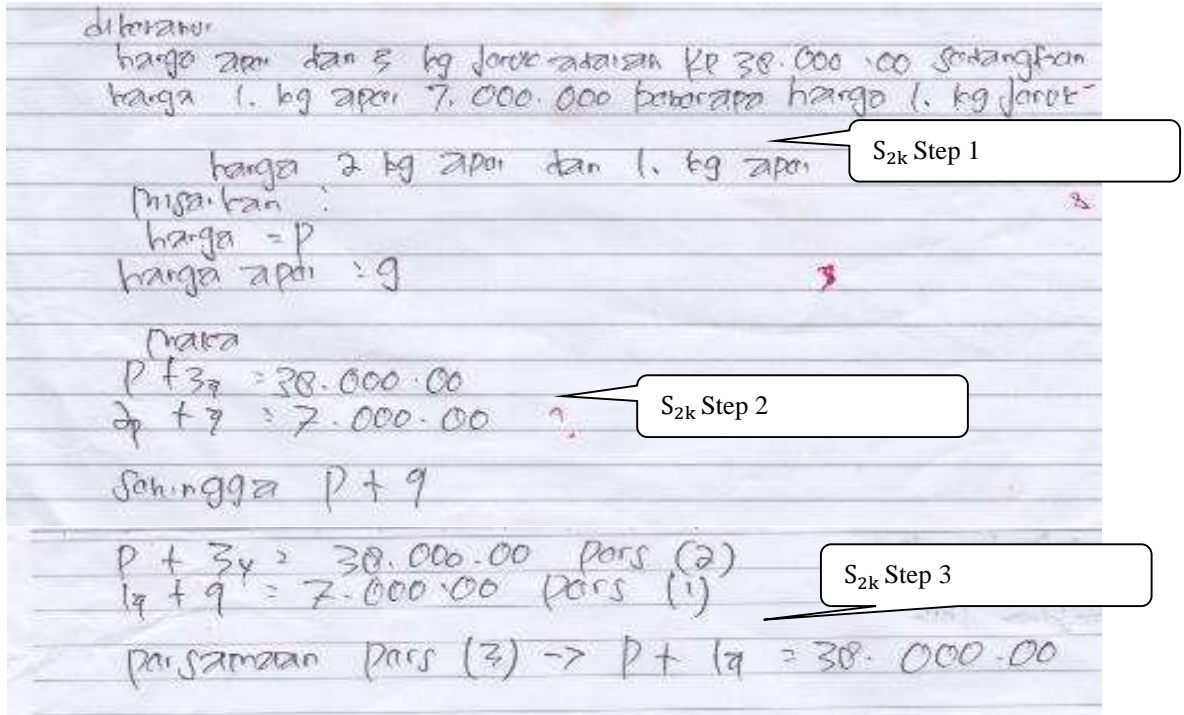 diketahui
harga apel dan 3 kg jeruk adalah Rp 38.000.00 sedangkan
harga 1. kg apel 7.000.000 beberapa harga 1. kg jeruk
S2k Step 1
harga 2 kg apel dan 1. kg apel
misalkan :
harga = P
harga apel : q
maka
P + 3q = 38.000.00
2p + q = 7.000.00
S2k Step 2
sehingga P + q
P + 3y = 38.000.00 pers (2)
1q + q = 7.000.00 pers (1)
S2k Step 3
persamaan pers (3) -> P + 1q = 38.000.00